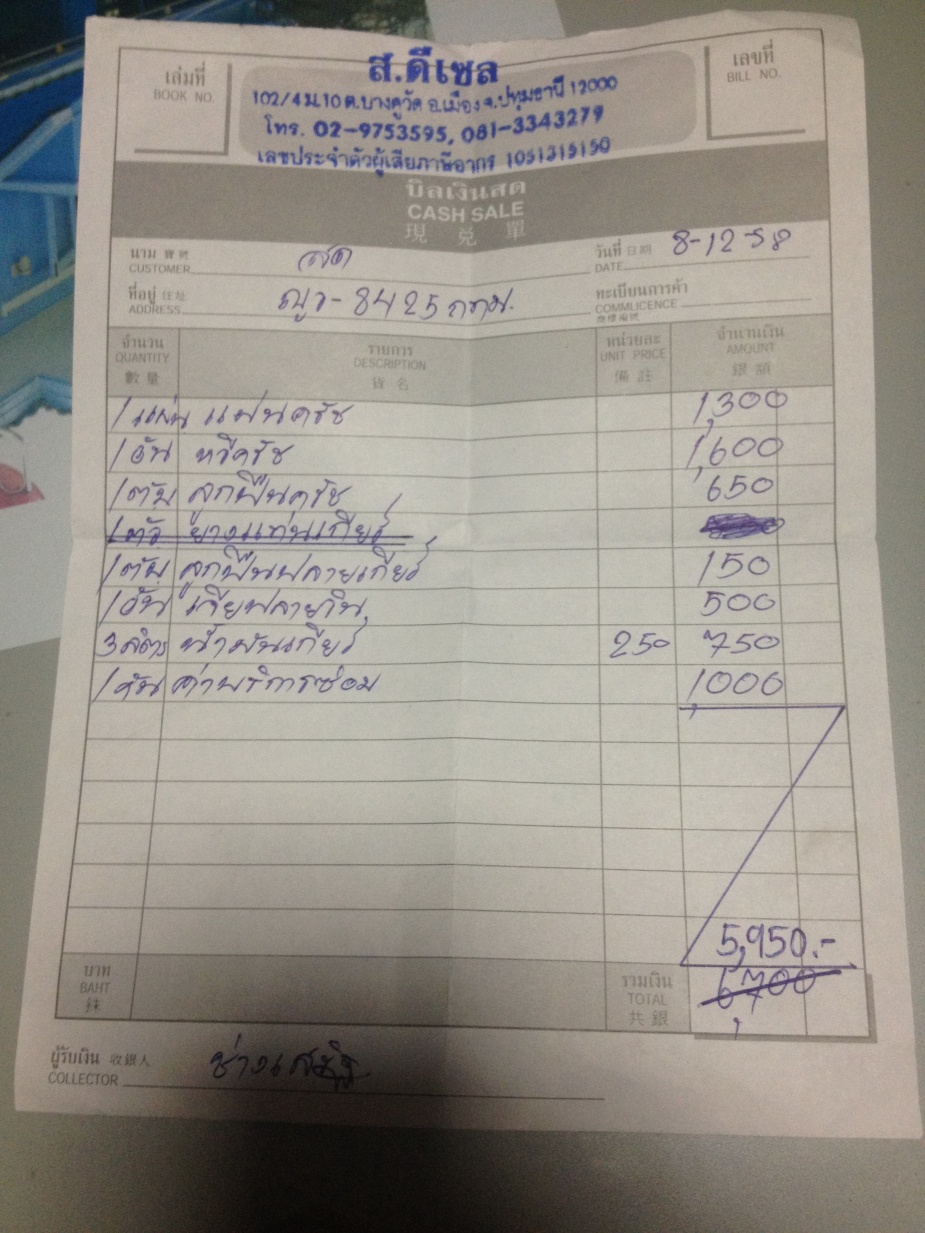 เล่มที่
BOOK NO.
ส.ดีเซล
102/4 ม.10 ต.บางคูวัด อ.เมือง จ.ปทุมธานี 12000
โทร. 02-9753595, 081-3343279
เลขประจำตัวผู้เสียภาษีอากร 1051315150
เลขที่
BILL NO.
บิลเงินสด
CASH SALE
現 兌 單
นาม 寶號 สด
CUSTOMER
วันที่ 日期 8-12-58
DATE
ที่อยู่ 住址 8425 กทม.
ADDRESS
ทะเบียนการค้า
COMMLICENCE
商標編號
จำนวน รายการ หน่วยละ จำนวนเงิน
QUANTITY DESCRIPTION UNIT PRICE AMOUNT
數量 貨名 備註 銀額
1 แผ่น แผ่นครัช 1,300
1 อัน หวีครัช 1,600
1 ตับ ลูกปืนครัช 650
ยางแท่นเกียร์
1 ตับ ลูกปืนปลายเกียร์ 150
1 อัน 500
3 ลิตร น้ำมันเกียร์ 250 750
1 คัน ค่าบริการซ่อม 1,000
5,950.-
บาท
BAHT
銖
รวมเงิน 6,700
TOTAL
共銀
ผู้รับเงิน 收銀人 ช่าง
COLLECTOR